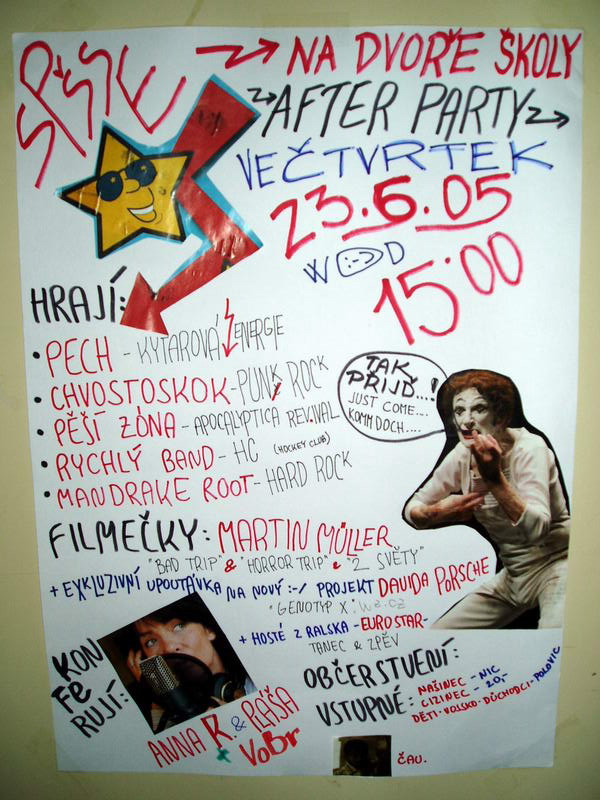 SPŠSE NA DVOŘE ŠKOLY
AFTER PARTY
VEČTVRTEK
23.6.05
W :-) D
15:00
HRAJÍ:
• PECH - KYTAROVÁ ENERGIE
• CHVOSTOSKOK - PUNK ROCK
• PĚŠÍ ZÓNA - APOCALYPTICA REVIVAL
• RYCHLÝ BAND - HC (HOCKEY CLUB)
• MANDRAKE ROOT - HARD ROCK
TAK
PŘIJĎ...!
JUST COME....
KOMM DOCH....
FILMEČKY: MARTIN MÜLLER
"BAD TRIP" & "HORROR TRIP" & "2 SVĚTY"
+ EXKLUZIVNÍ UPOUTÁVKA NA NOVÝ :-/ PROJEKT DAVIDA PORSCHE
"GENOTYP X"
+ HOSTÉ Z RALSKA - EUROSTAR -
TANEC & ZPĚV
KON
FE
RUJÍ:
ANNA K. & PLÁŠA
VoBr
OBČERSTVENÍ:
VSTUPNÉ: NAŠINEC - NIC
CIZINEC - 20,-
DĚTI-VOJSKO-DŮCHODCI-POLOVIC
ČAU.